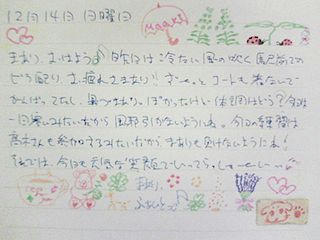 12月14日 日曜日
MAARI
まあり、おはよう♪ 昨日は冷たい風の吹く
どう配り、お疲れさまあり! ずーっとコートも着ないで
がんばってたし、鼻つまり、ぼかったけど体調はどう? 今週
一日寒いみたいだから風邪引かないようにね。今日の練習は
高木さんも参加するみたいだから、まありも負けないようにね!
それでは、今日も元気な笑顔でいってらっしゃーい
まあり
ふぁいとっ